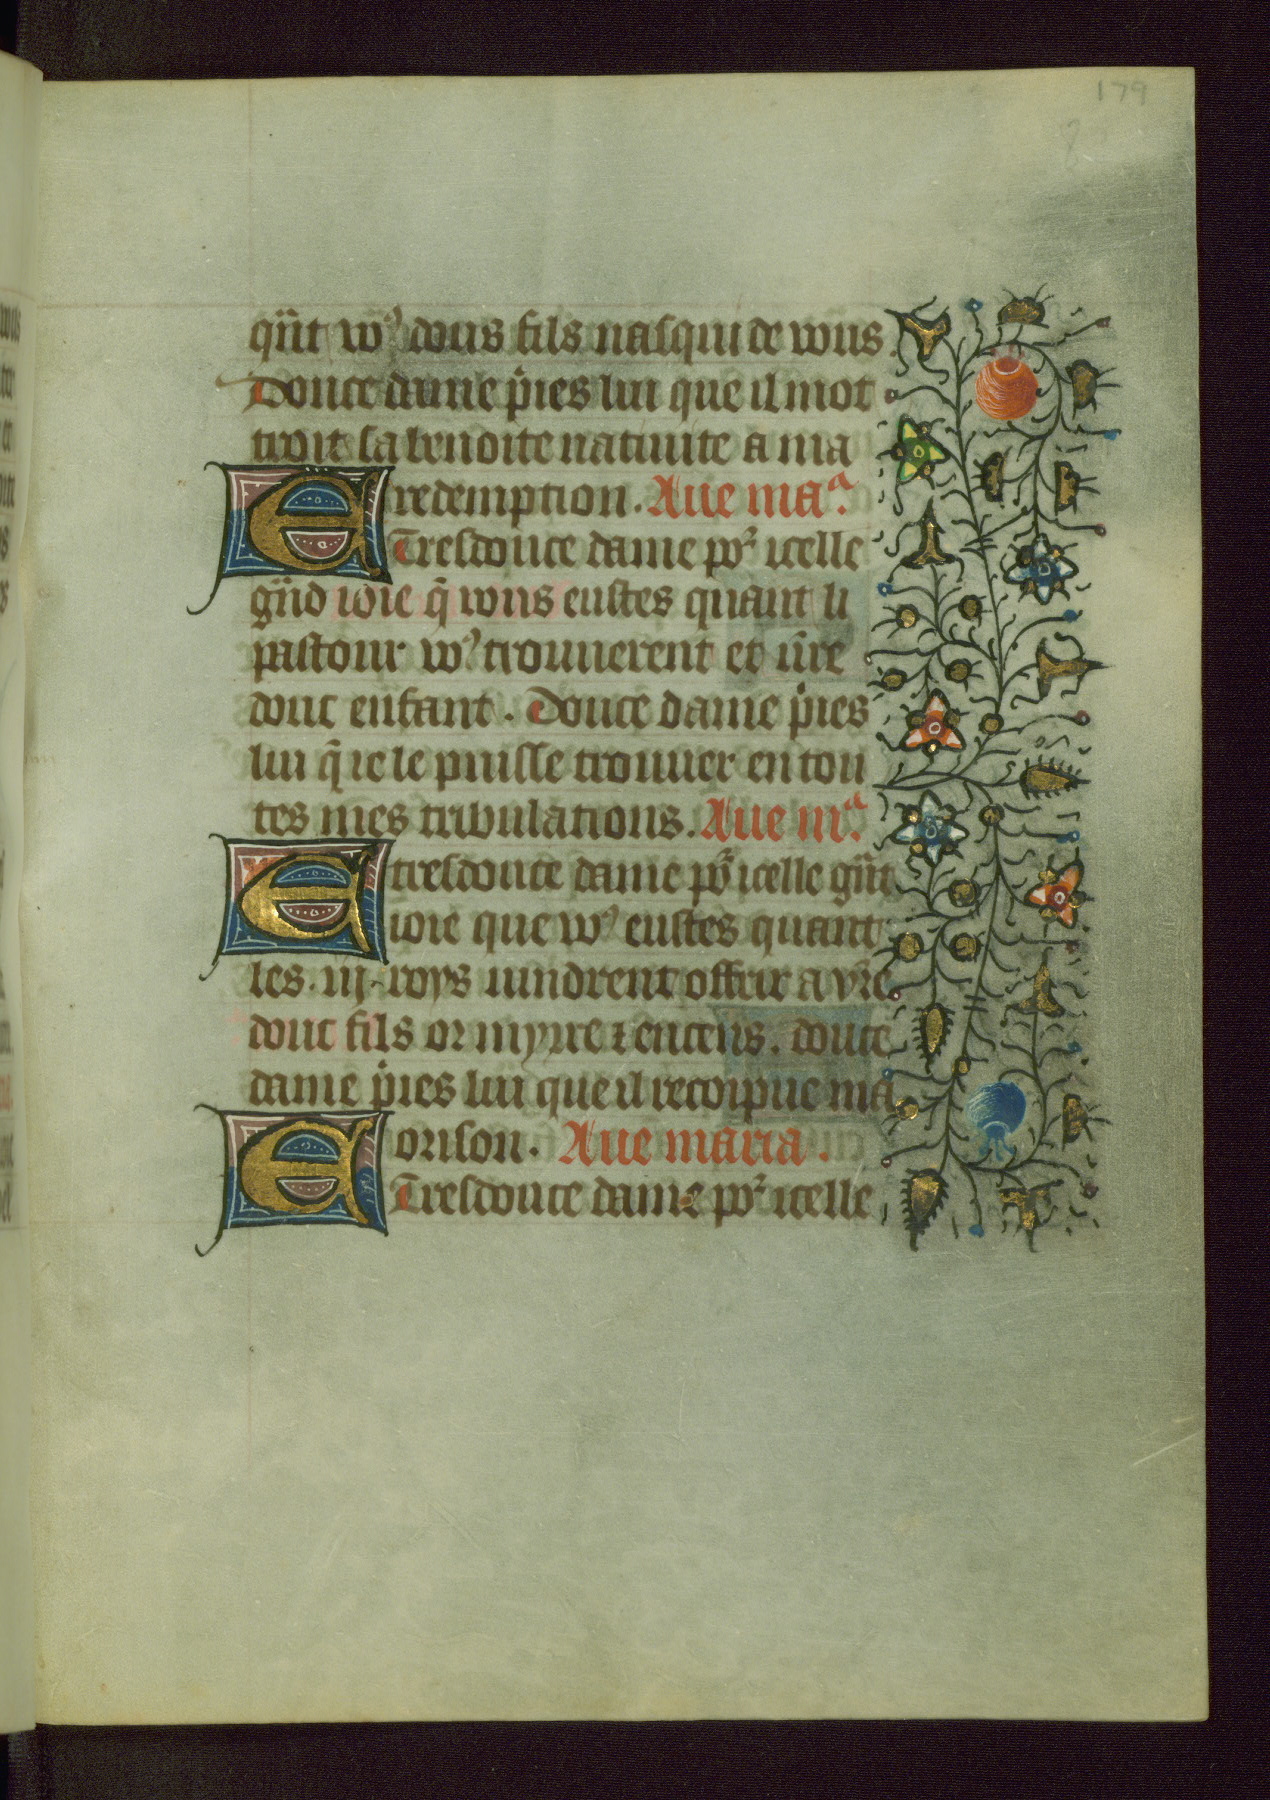 179
qnt vo9 dous fils nasqui de vous.
Douce dame pries lui que il mot
troit sa benoite natiuite a ma
redemption. Aue maa.
E Tresdouce dame por icelle
gnd ioie q̃ vous eustes quant li
pastour vo9 trouuerent et vr̃e
douc enfant. Douce dame pries
lui q̃ ie le puisse trouuer en tou
tes mes tribulations. Aue ma.
E tresdouce dame por icelle gñt
ioie que vo9 eustes quant
les .iij. roys uindrent offrir a vr̃e
douc fils or myrre ⁊ encens. douce
dame pries lui que il recoipue ma
orison. Aue maria.
E Tresdouce dame por icelle